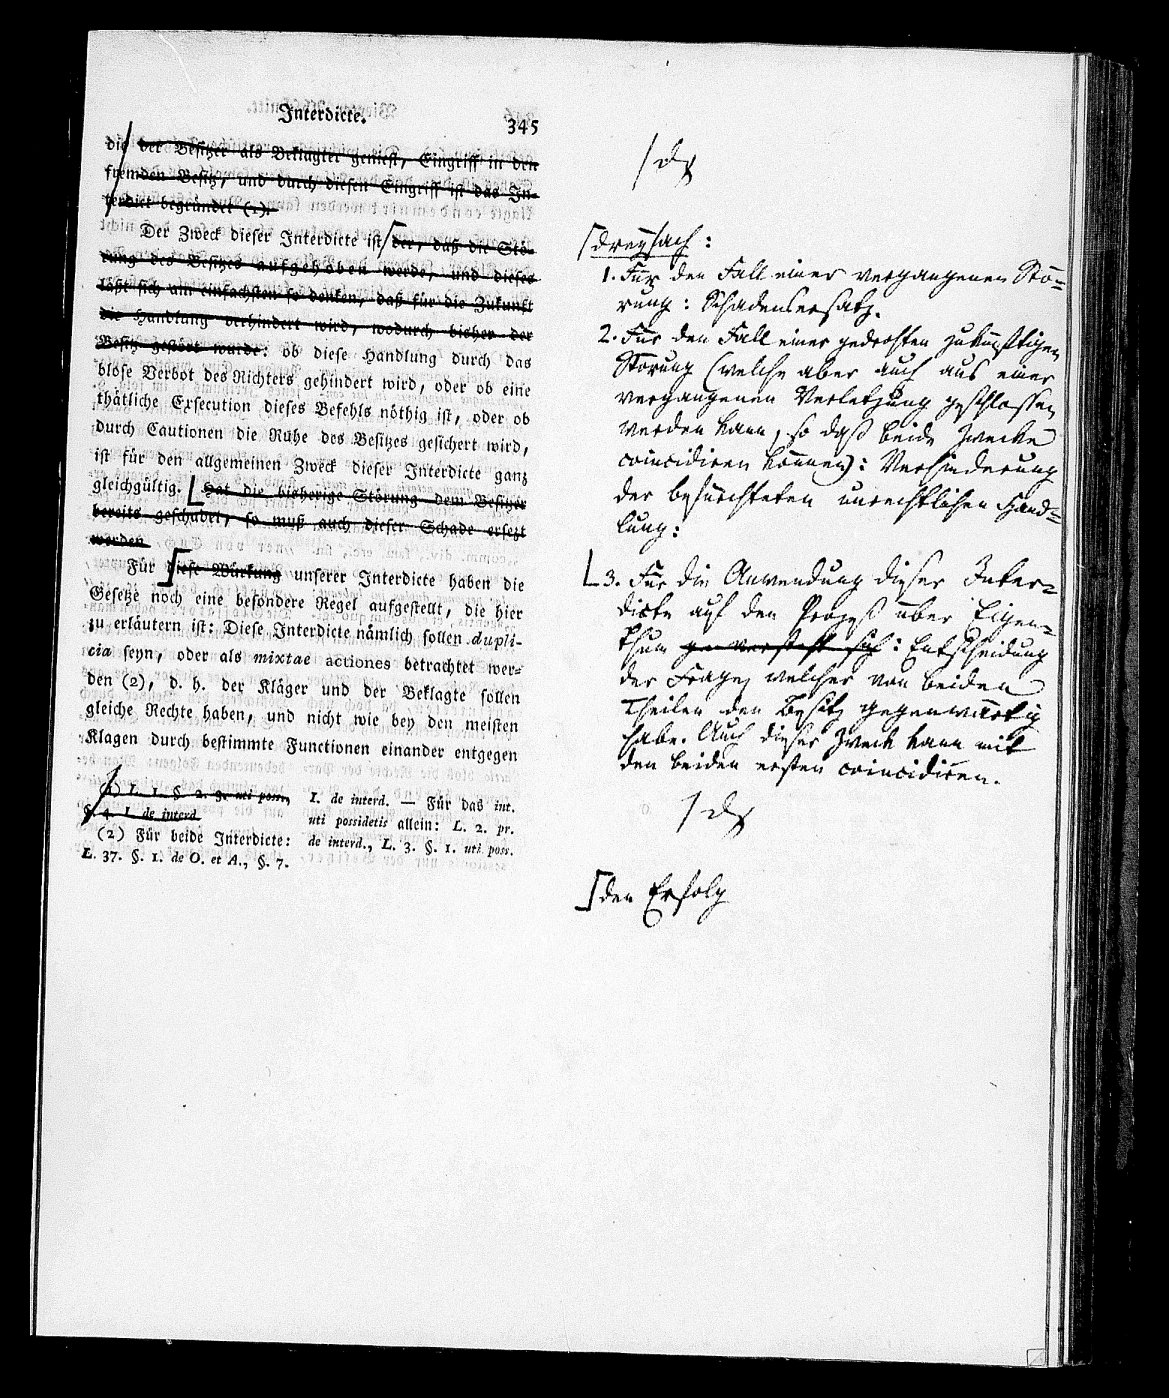 Interdicte.
345
die der Besitzer als Beklagter geniest, Eingriff in den
fremden Besitz, und durch diesen Eingriff ist das In-
terdict begründet (1).
Der Zweck dieser Interdicte ist der, daß die Stö-
rung des Besitzes aufgehoben werde, und dieses
läßt sich am einfachsten so denken, daß für die Zukunft
die Handlung verhindert wird, wodurch bisher der
Besitz gestört wurde: ob diese Handlung durch das
blose Verbot des Richters gehindert wird, oder ob eine
thätliche Exsecution dieses Befehls nöthig ist, oder ob
durch Cautionen die Ruhe des Besitzes gesichert wird,
ist für den allgemeinen Zweck dieser Interdicte ganz
gleichgültig. Hat die bisherige Störung dem Besitzer
bereits geschadet, so muß auch dieser Schade ersezt
werden.
Für diese Würkung unserer Interdicte haben die
Gesetze noch eine besondere Regel aufgestellt, die hier
zu erläutern ist: Diese Interdicte nämlich sollen dupli-
cia seyn, oder als mixtae actiones betrachtet wer-
den (2), d. h. der Kläger und der Beklagte sollen
gleiche Rechte haben, und nicht wie bey den meisten
Klagen durch bestimmte Functionen einander entgegen
(1) L. 1. §. 2. 3. uti poss.,
§. 4. I. de interd.
(2) Für beide Interdicte:
L. 37. §. 1. de O. et A., §. 7.
I. de interd. — Für das int.
uti possidetis allein: L. 2. pr.
de interd., L. 3. §. 1. uti poss.
dreyfach:
1. Für den Fall einer vergangenen Stö=
rung: Schadensersatz.
2. Für den Fall einer gedrohten zukünftigen
Störung (welche aber auch aus einer
vergangenen Verletzung geschlossen
werden kann, so daß beide Zwecke
coincidiren können): Verhinderung
der befürchteten unrechtlichen Hand=
lung:
3. Für die Anwendung dieser Inter=
dicte auf den Prozeß über Eigen=
thum versteht sich: Entscheidung
der Frage, welcher von beiden
Theilen den Besitz gegenwärtig
habe. Auch dieser Zweck kann mit
den beiden ersten coincidiren.
den Erfolg